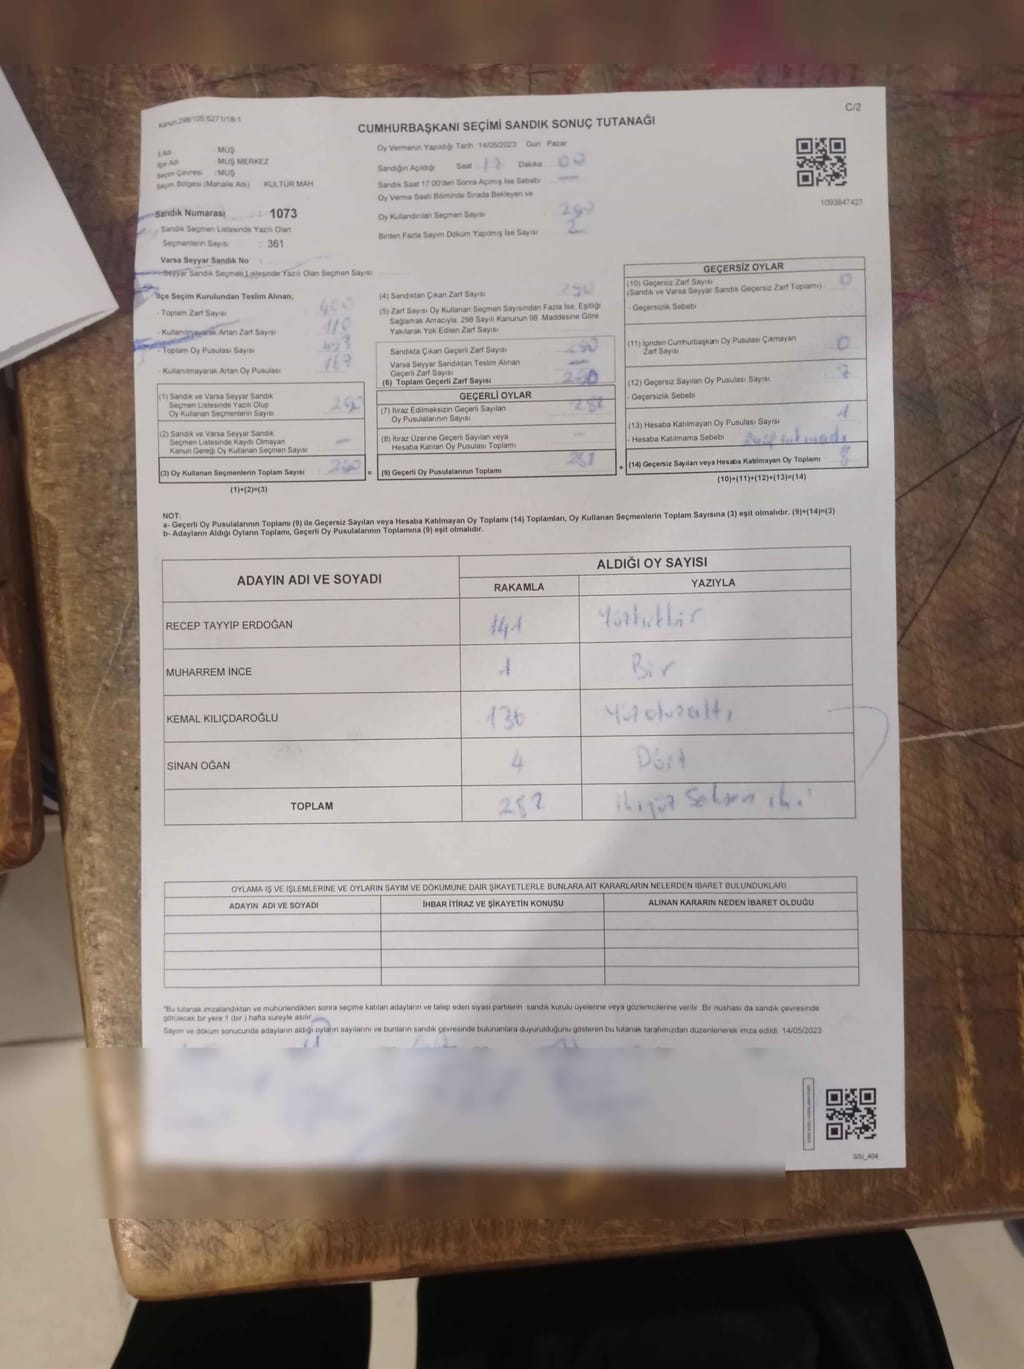 Kanun:298/105;6271/18-1
C/2
CUMHURBAŞKANI SEÇİMİ SANDIK SONUÇ TUTANAĞI
İl Adı : MUŞ
İlçe Adı : MUŞ MERKEZ
Seçim Çevresi : MUŞ
Seçim Bölgesi (Mahalle Adı) KÜLTÜR MAH
Sandık Numarası : 1073
Sandık Seçmen Listesinde Yazılı Olan
Seçmenlerin Sayısı : 361
Varsa Seyyar Sandık No :
Seyyar Sandık Seçmen Listesinde Yazılı Olan Seçmen Sayısı :
Oy Vermenin Yapıldığı Tarih 14/05/2023 Gün Pazar
Sandığın Açıldığı Saat 17 Dakika 00
Sandık Saat 17:00'den Sonra Açılmış İse Sebebi —
Oy Verme Saati Bitiminde Sırada Bekleyen ve
Oy Kullandırılan Seçmen Sayısı
Birden Fazla Sayım Döküm Yapılmış İse Sayısı 2
1093847427
İlçe Seçim Kurulundan Teslim Alınan;
- Toplam Zarf Sayısı 400
- Kullanılmayarak Artan Zarf Sayısı 110
- Toplam Oy Pusulası Sayısı
- Kullanılmayarak Artan Oy Pusulası
(1) Sandık ve Varsa Seyyar Sandık
Seçmen Listesinde Yazılı Olup
Oy Kullanan Seçmenlerin Sayısı 290
(2) Sandık ve Varsa Seyyar Sandık
Seçmen Listesinde Kaydı Olmayan
Kanun Gereği Oy Kullanan Seçmen Sayısı —
(3) Oy Kullanan Seçmenlerin Toplam Sayısı 290 =
(1)+(2)=(3)
(4) Sandıktan Çıkan Zarf Sayısı 290
(5) Zarf Sayısı Oy Kullanan Seçmen Sayısından Fazla İse, Eşitliği
Sağlamak Amacıyla, 298 Sayılı Kanunun 98. Maddesine Göre
Yakılarak Yok Edilen Zarf Sayısı
Sandıkta Çıkan Geçerli Zarf Sayısı 290
Varsa Seyyar Sandıktan Teslim Alınan
Geçerli Zarf Sayısı —
(6) Toplam Geçerli Zarf Sayısı 290
GEÇERLİ OYLAR
(7) İtiraz Edilmeksizin Geçerli Sayılan
Oy Pusulalarının Sayısı 282
(8) İtiraz Üzerine Geçerli Sayılan veya
Hesaba Katılan Oy Pusulası Toplamı —
(9) Geçerli Oy Pusulalarının Toplamı 282 +
GEÇERSİZ OYLAR
(10) Geçersiz Zarf Sayısı
(Sandık ve Varsa Seyyar Sandık Geçersiz Zarf Toplamı) 0
- Geçersizlik Sebebi
(11) İçinden Cumhurbaşkanı Oy Pusulası Çıkmayan
Zarf Sayısı 0
(12) Geçersiz Sayılan Oy Pusulası Sayısı 7
- Geçersizlik Sebebi
(13) Hesaba Katılmayan Oy Pusulası Sayısı 1
- Hesaba Katılmama Sebebi
(14) Geçersiz Sayılan veya Hesaba Katılmayan Oy Toplamı 8
(10)+(11)+(12)+(13)=(14)
NOT:
a- Geçerli Oy Pusulalarının Toplamı (9) ile Geçersiz Sayılan veya Hesaba Katılmayan Oy Toplamı (14) Toplamları, Oy Kullanan Seçmenlerin Toplam Sayısına (3) eşit olmalıdır. (9)+(14)=(3)
b- Adayların Aldığı Oyların Toplamı, Geçerli Oy Pusulalarının Toplamına (9) eşit olmalıdır.
ADAYIN ADI VE SOYADI
ALDIĞI OY SAYISI
RAKAMLA YAZIYLA
RECEP TAYYİP ERDOĞAN 141 Yüzkırkbir
MUHARREM İNCE 1 Bir
KEMAL KILIÇDAROĞLU 136 Yüzotuzaltı
SİNAN OĞAN 4 Dört
TOPLAM 282 ikiyüz Seksen iki
OYLAMA İŞ VE İŞLEMLERİNE VE OYLARIN SAYIM VE DÖKÜMÜNE DAİR ŞİKAYETLERLE BUNLARA AİT KARARLARIN NELERDEN İBARET BULUNDUKLARI
ADAYIN ADI VE SOYADI İHBAR İTİRAZ VE ŞİKAYETİN KONUSU ALINAN KARARIN NEDEN İBARET OLDUĞU
*Bu tutanak imzalandıktan ve mühürlendikten sonra seçime katılan adayların ve talep eden siyasi partilerin sandık kurulu üyelerine veya gözlemcilerine verilir. Bir nushası da sandık çevresinde
görülecek bir yere 1 (bir) hafta süreyle asılır.
Sayım ve döküm sonucunda adayların aldığı oyların sayılarını ve bunların sandık çevresinde bulunanlara duyurulduğunu gösteren bu tutanak tarafımızdan düzenlenerek imza edildi. 14/05/2023
GSI_404